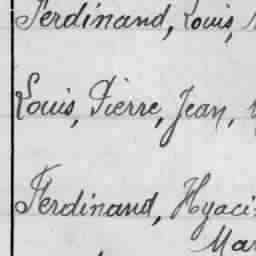 Ferdinand, Louis,
Louis, Pierre, Jean,
Ferdinand, Hyaci
Mar